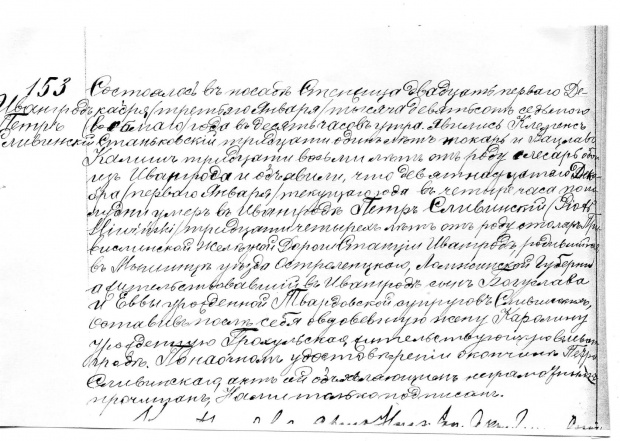 153
Ивангродъ
Петръ
Сливинскій
Состоялось въ посадѣ Стенжица двадцать перваго Де-
кабря /третьяго Января/ тысяча девятьсотъ седьмого
восьмаго года въ десять часовъ утра. Явились Клеменсъ
Станьковскій тридцати одного лѣтъ токарь и Вацлавъ
Калишъ тридцати восьми лѣтъ отъ роду слесарь оба
изъ Ивангрода и объявили, что девятнадцатого Дека-
бря /перваго Января/ текущаго года въ четыре часа по по-
лудни умеръ въ Ивангродѣ Петръ Сливинскій /Piotr
Śliwiński/ тридцати четырехъ лѣтъ отъ роду столяръ При-
вислинской Желѣзной Дороги Станціи Ивангродъ, родившійся
въ уѣзда Остроленцкаго, Ломжинской Губерніи
а жительствовавшій въ Ивангродѣ сынъ Богуслава
и Еввы урожденной Твардовской супруговъ Сливинскихъ,
оставивъ послѣ себя овдовѣвшую жену Каролину
урожденную жительствующую въ Иван-
гродѣ. По наочномъ удостовѣреніи о кончинѣ Петра
Сливинскаго, актъ сей объявляющимъ неграмотнымъ
прочитанъ, Нами только подписанъ.